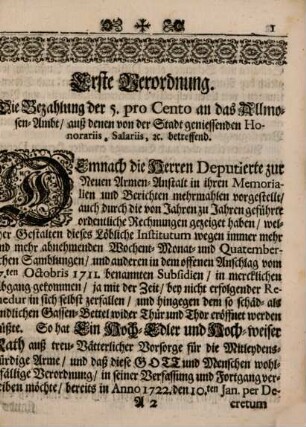 1
Erste Verordnung.
Die Bezahlung der 5. pro Cento an das Allmo-
sen-Ambt/ auß denen von der Stadt geniessenden Ho-
norariis, Salariis, ꝛc. betreffend.
DEmnach die Herren Deputierte zur
Neuen Armen-Anstalt in ihren Memoria-
lien und Berichten mehrmahlen vorgestellt/
auch durch die von Jahren zu Jahren geführte
ordentliche Rechnungen gezeiget haben/ wel-
cher Gestalten dieses Löbliche Institutum wegen immer mehr
und mehr abnehmenden Wochent-Monat- und Quatember-
lichen Samblungen/ und anderen in dem offenen Anschlag vom
7.ten Octobris 1711. benannten Subsidien/ in mercklichen
Abgang gekommen/ ja mit der Zeit/ bey nicht erfolgender Re-
medur in sich selbst zerfallen/ und hingegen dem so schäd- als
schändlichen Gassen-Bettel wider Thür und Thor eröffnet werden
müßte. So hat Ein Hoch-Edler und Hoch-weiser
Rath auß treu-Vätterlicher Vorsorge für die Mitleydens-
würdige Arme/ und daß diese GOTT und Menschen wohl-
gefällige Verordnung/ in seiner Verfassung und Fortgang ver-
bleiben möchte/ bereits in Anno 1722. den 10.ten Jan. per De-
A 2 cretum